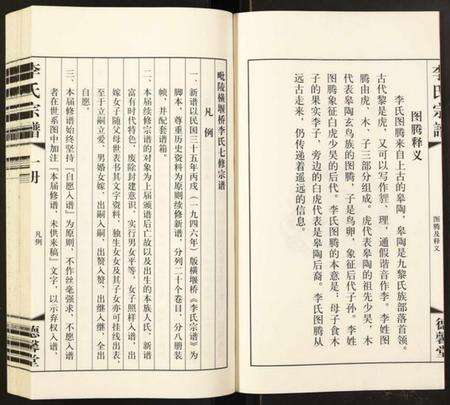 李氏宗譜
圖騰及釋义
德馨堂
图腾释义
李氏图腾来自上古的皋陶，皋陶是九黎氏族部落首领。
古代黎是虎，又可以写作狸、理，通假谐音作李。李姓图
腾由虎、木、子三部分组成。虎代表皋陶的祖先少昊，木
代表皋陶玄鸟族的图腾，子是鸟卵，象征后代子孙。李姓
图腾象征白虎少昊的后代。李氏图腾的本意是：母子食木
子的果实李子，旁边的白虎代表是皋陶后裔。李氏图腾从
远古走来，仍传递着遥远的信息。
毗陵横堰桥李氏七修宗谱
凡例
一、新谱以民国三十五年丙戌（一九四六年）版横堰桥《李氏宗谱》为
脚本，尊重历史资料为原则续修新谱，分列二十个卷目，分八册装
帧，并配套谱箱。
二、本届续修宗谱的对象为上届颁谱后亡故以及出生的本族人氏。新谱
富有时代特色，废除封建意识，实行男女平等，女子照样入谱，出
嫁女子随父母世表书其文字资料，独生女女及其子女亦可挂线出表，
至于立嗣立爱、男婚女嫁，出嗣入嗣，出赘入赘，出继入继，全出
自愿。
三、本届修谱始终坚持『自愿入谱』为原则，不作丝毫强求，不愿入谱
者在世系图中加注『本届修谱，未供来稿』文字，以示弃权入谱、
李氏宗譜
一册
凡例
德馨堂